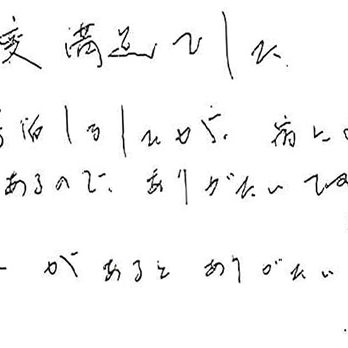 変満足でした。
宿泊しましたが、宿に
あるので、ありがたいです
ーがあるとありがたい